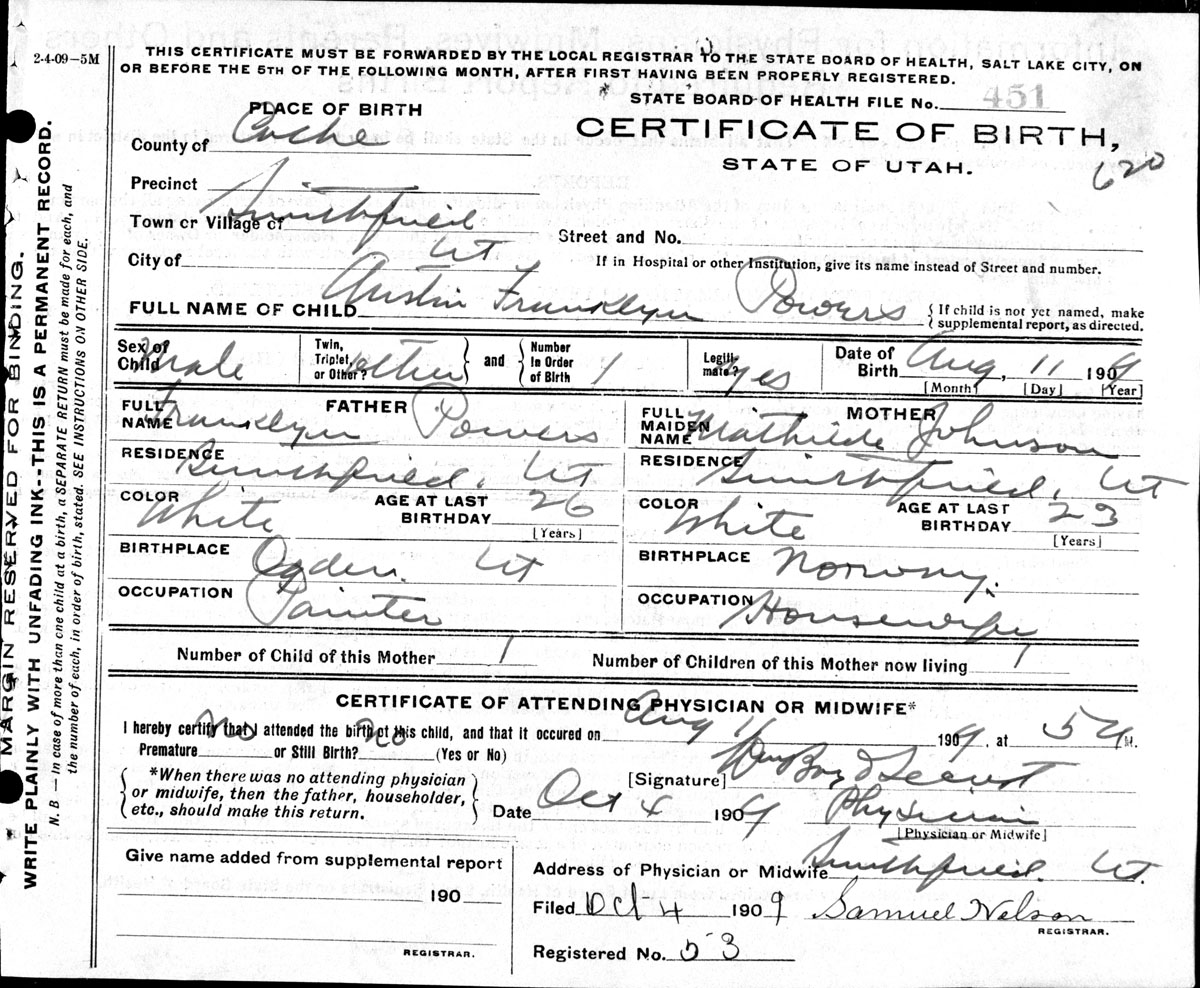 2-4-09-5M
THIS CERTIFICATE MUST BE FORWARDED BY THE LOCAL REGISTRAR TO THE STATE BOARD OF HEALTH, SALT LAKE CITY, ON
OR BEFORE THE 5TH OF THE FOLLOWING MONTH, AFTER FIRST HAVING BEEN PROPERLY REGISTERED.
PLACE OF BIRTH
STATE BOARD OF HEALTH FILE No. 451
County of Cache
CERTIFICATE OF BIRTH,
STATE OF UTAH.
620
Precinct
Town or Village of Smithfield
Street and No.
City of Ut
If in Hospital or other Institution, give its name instead of Street and number.
FULL NAME OF CHILD Austin Franklyn Powers
{If child is not yet named, make
supplemental report, as directed.
Sex of Child Male Twin, Triplet, or Other? other and Number In Order of Birth 1 Legitimate? yes Date of Birth Aug, 11 1909
[Month] [Day] [Year]
FULL NAME FATHER Franklyn Powers
FULL MAIDEN NAME MOTHER Mathilde Johnson
RESIDENCE Smithfield, Ut
RESIDENCE Smithfield, Ut
COLOR White AGE AT LAST BIRTHDAY 26 [Years]
COLOR White AGE AT LAST BIRTHDAY 23 [Years]
BIRTHPLACE Ogden. Ut
BIRTHPLACE Norway.
OCCUPATION Painter
OCCUPATION Housewife
Number of Child of this Mother 1 Number of Children of this Mother now living 1
CERTIFICATE OF ATTENDING PHYSICIAN OR MIDWIFE*
I hereby certify that I attended the birth of this child, and that it occured on Aug 11 1909, at 5 M.
Premature no or Still Birth? no (Yes or No)
[Signature] Wm Boyd
*When there was no attending physician
or midwife, then the father, householder,
etc., should make this return.
Date Oct 4 1909 Physician
[Physician or Midwife]
Give name added from supplemental report
190
REGISTRAR.
Address of Physician or Midwife Smithfield. Ut.
Filed Oct 4 1909 Samuel Nelson
REGISTRAR.
Registered No. 53
MARGIN RESERVED FOR BINDING.
WRITE PLAINLY WITH UNFADING INK--THIS IS A PERMANENT RECORD.
N. B.—In case of more than one child at a birth, a SEPARATE RETURN must be made for each, and
the number of each, in order of birth, stated. SEE INSTRUCTIONS ON OTHER SIDE.